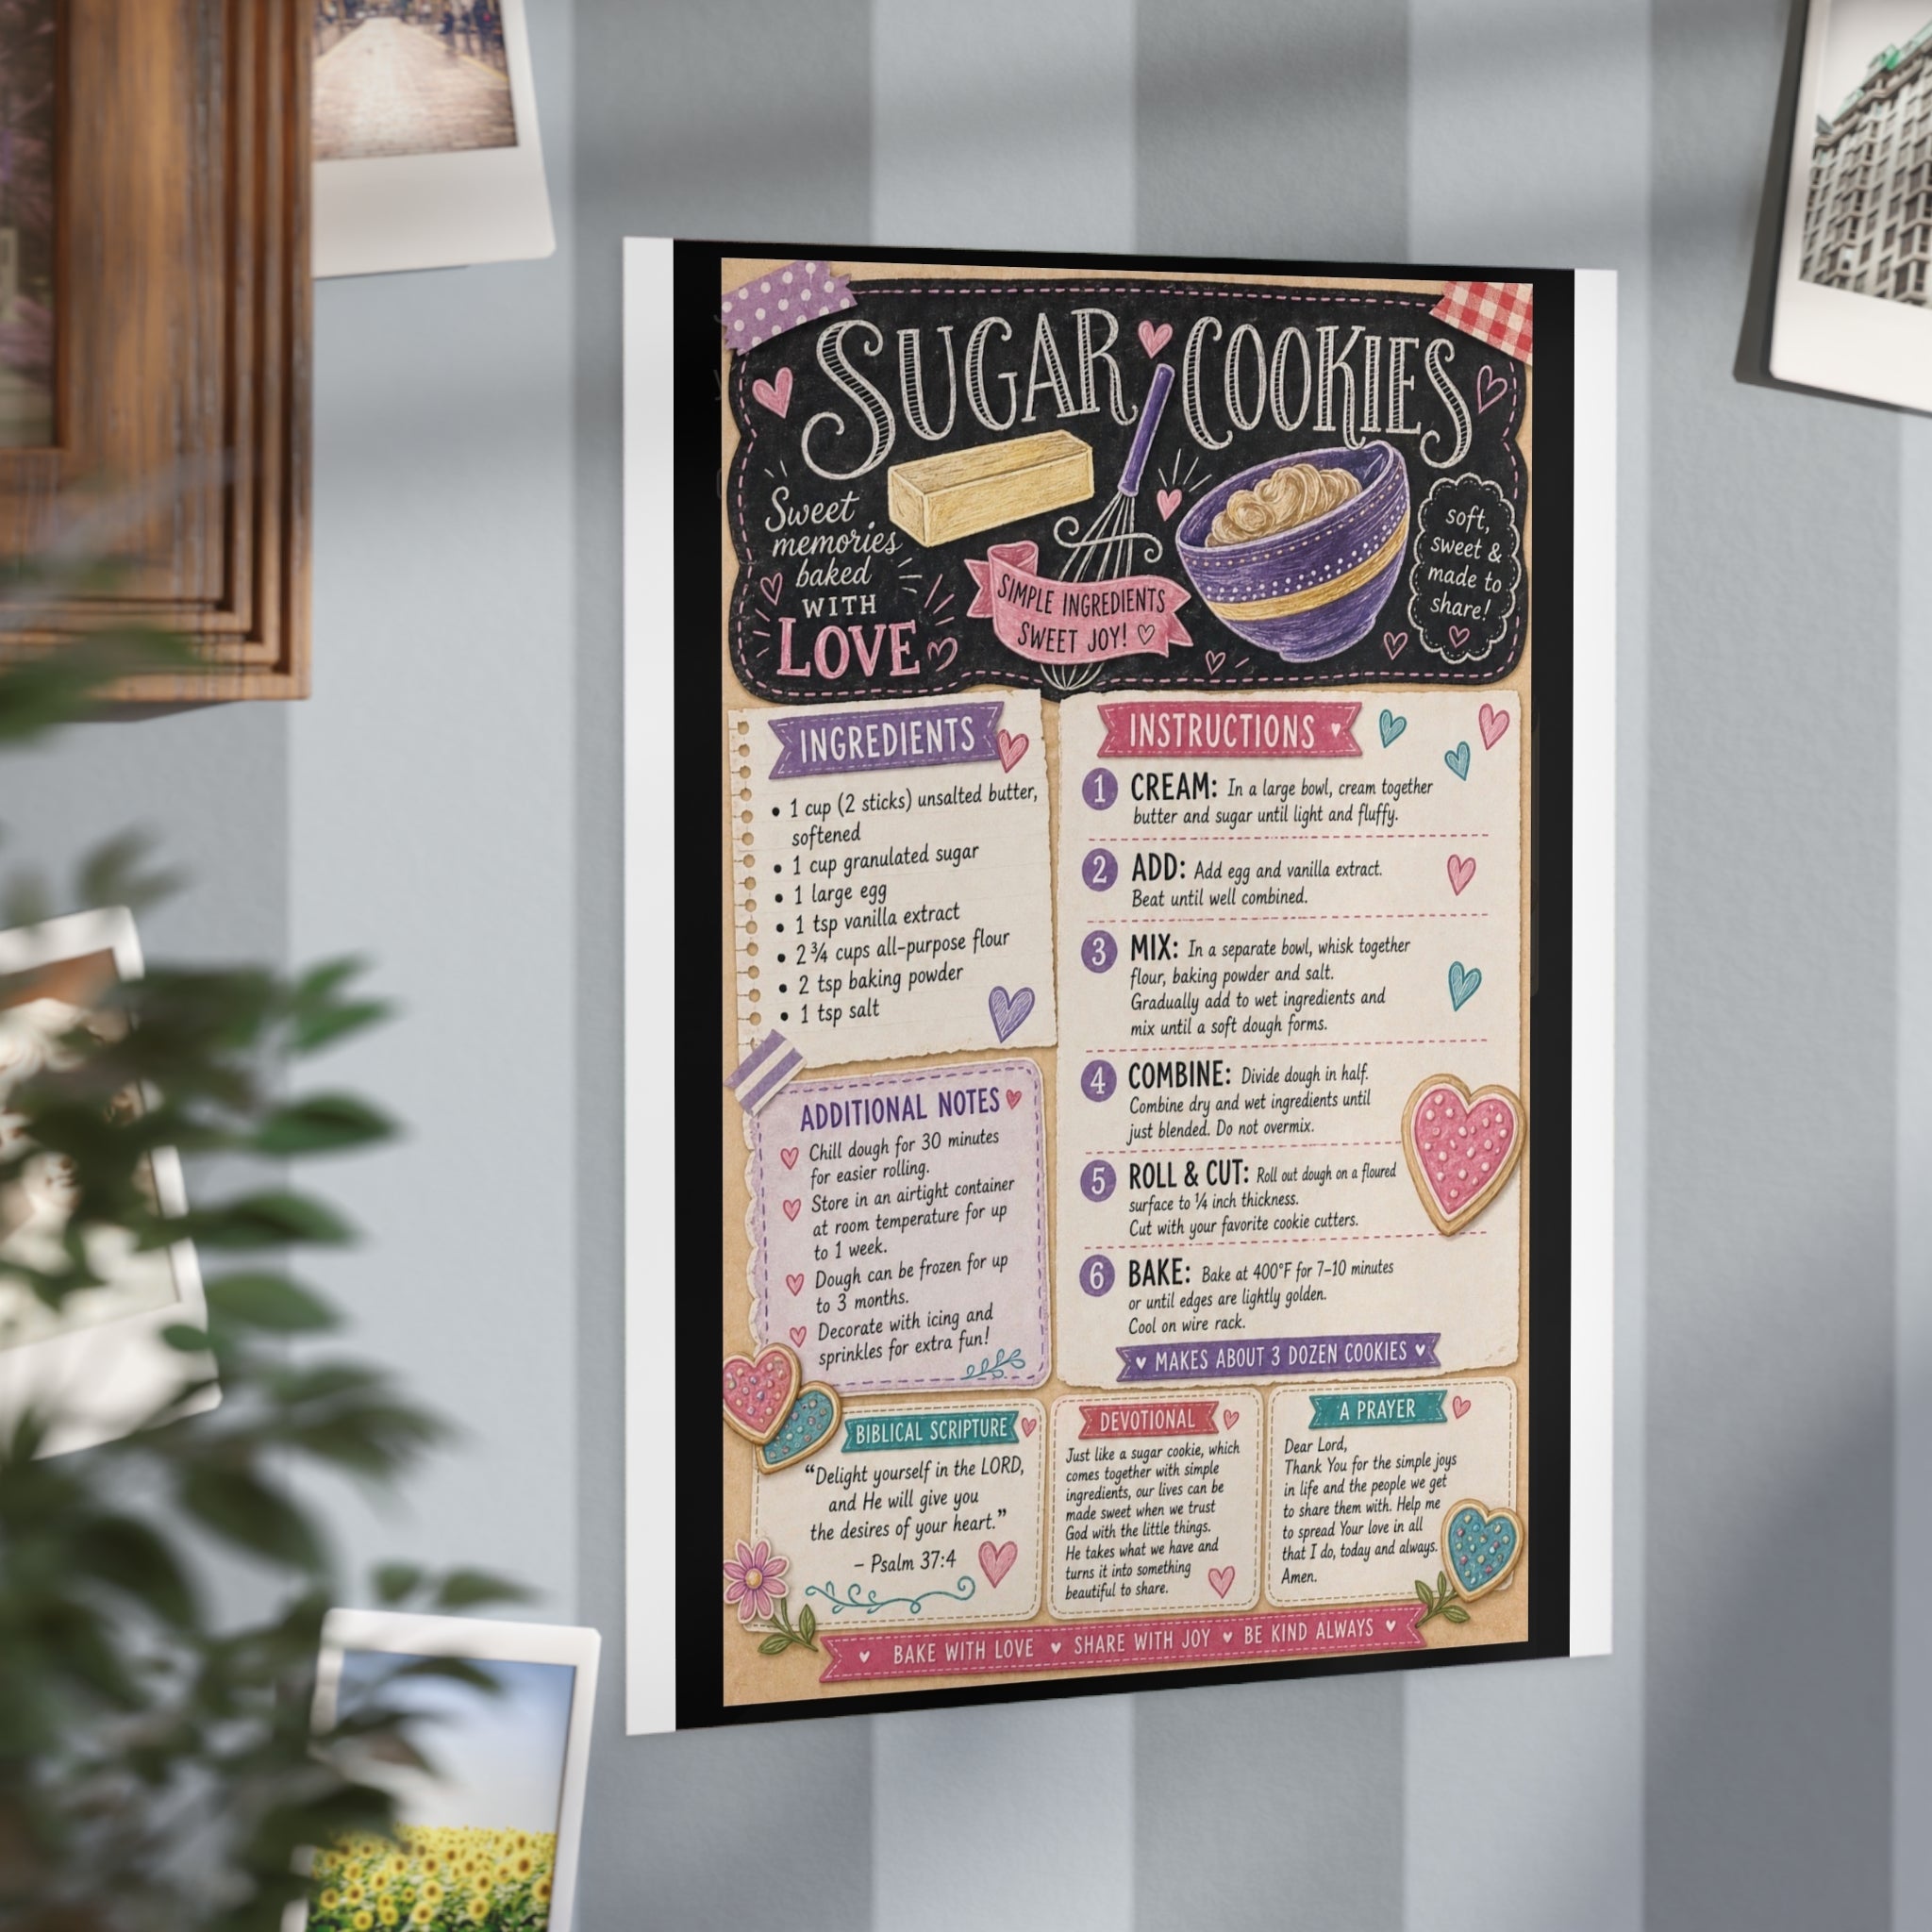 SUGAR COOKIES
Sweet
memories
baked
WITH
LOVE
SIMPLE INGREDIENTS
SWEET JOY!
soft,
sweet &
made to
share!
INGREDIENTS
• 1 cup (2 sticks) unsalted butter,
softened
• 1 cup granulated sugar
• 1 large egg
• 1 tsp vanilla extract
• 2 ¾ cups all-purpose flour
• 2 tsp baking powder
• 1 tsp salt
ADDITIONAL NOTES
Chill dough for 30 minutes
for easier rolling.
Store in an airtight container
at room temperature for up
to 1 week.
Dough can be frozen for up
to 3 months.
Decorate with icing and
sprinkles for extra fun!
INSTRUCTIONS
1 CREAM: In a large bowl, cream together
butter and sugar until light and fluffy.
2 ADD: Add egg and vanilla extract.
Beat until well combined.
3 MIX: In a separate bowl, whisk together
flour, baking powder and salt.
Gradually add to wet ingredients and
mix until a soft dough forms.
4 COMBINE: Divide dough in half.
Combine dry and wet ingredients until
just blended. Do not overmix.
5 ROLL & CUT: Roll out dough on a floured
surface to ¼ inch thickness.
Cut with your favorite cookie cutters.
6 BAKE: Bake at 400°F for 7-10 minutes
or until edges are lightly golden.
Cool on wire rack.
MAKES ABOUT 3 DOZEN COOKIES
BIBLICAL SCRIPTURE
“Delight yourself in the LORD,
and He will give you
the desires of your heart.”
– Psalm 37:4
DEVOTIONAL
Just like a sugar cookie, which
comes together with simple
ingredients, our lives can be
made sweet when we trust
God with the little things.
He takes what we have and
turns it into something
beautiful to share.
A PRAYER
Dear Lord,
Thank You for the simple joys
in life and the people we get
to share them with. Help me
to spread Your love in all
that I do, today and always.
Amen.
BAKE WITH LOVE SHARE WITH JOY BE KIND ALWAYS